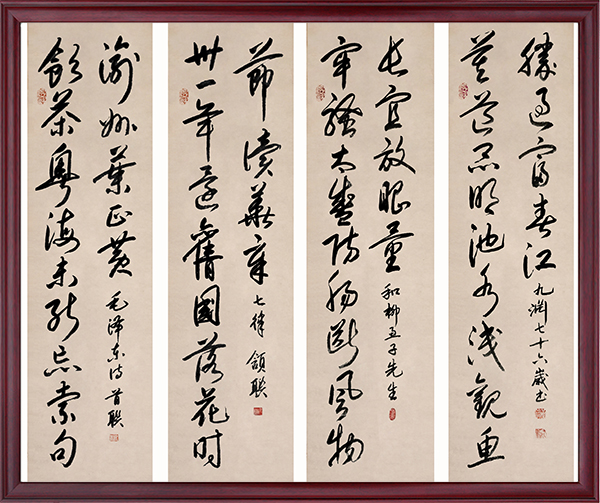 飲茶粵海未能忘索句
渝州葉正黄 毛泽东诗首联
卅一年還舊國落花时
節讀華章 七律 頷联
牢騷太盛防腸斷風物
长宜放眼量 和柳亚子先生
莫道昆明池水浅觀魚
勝過富春江 九渊七十六歲书